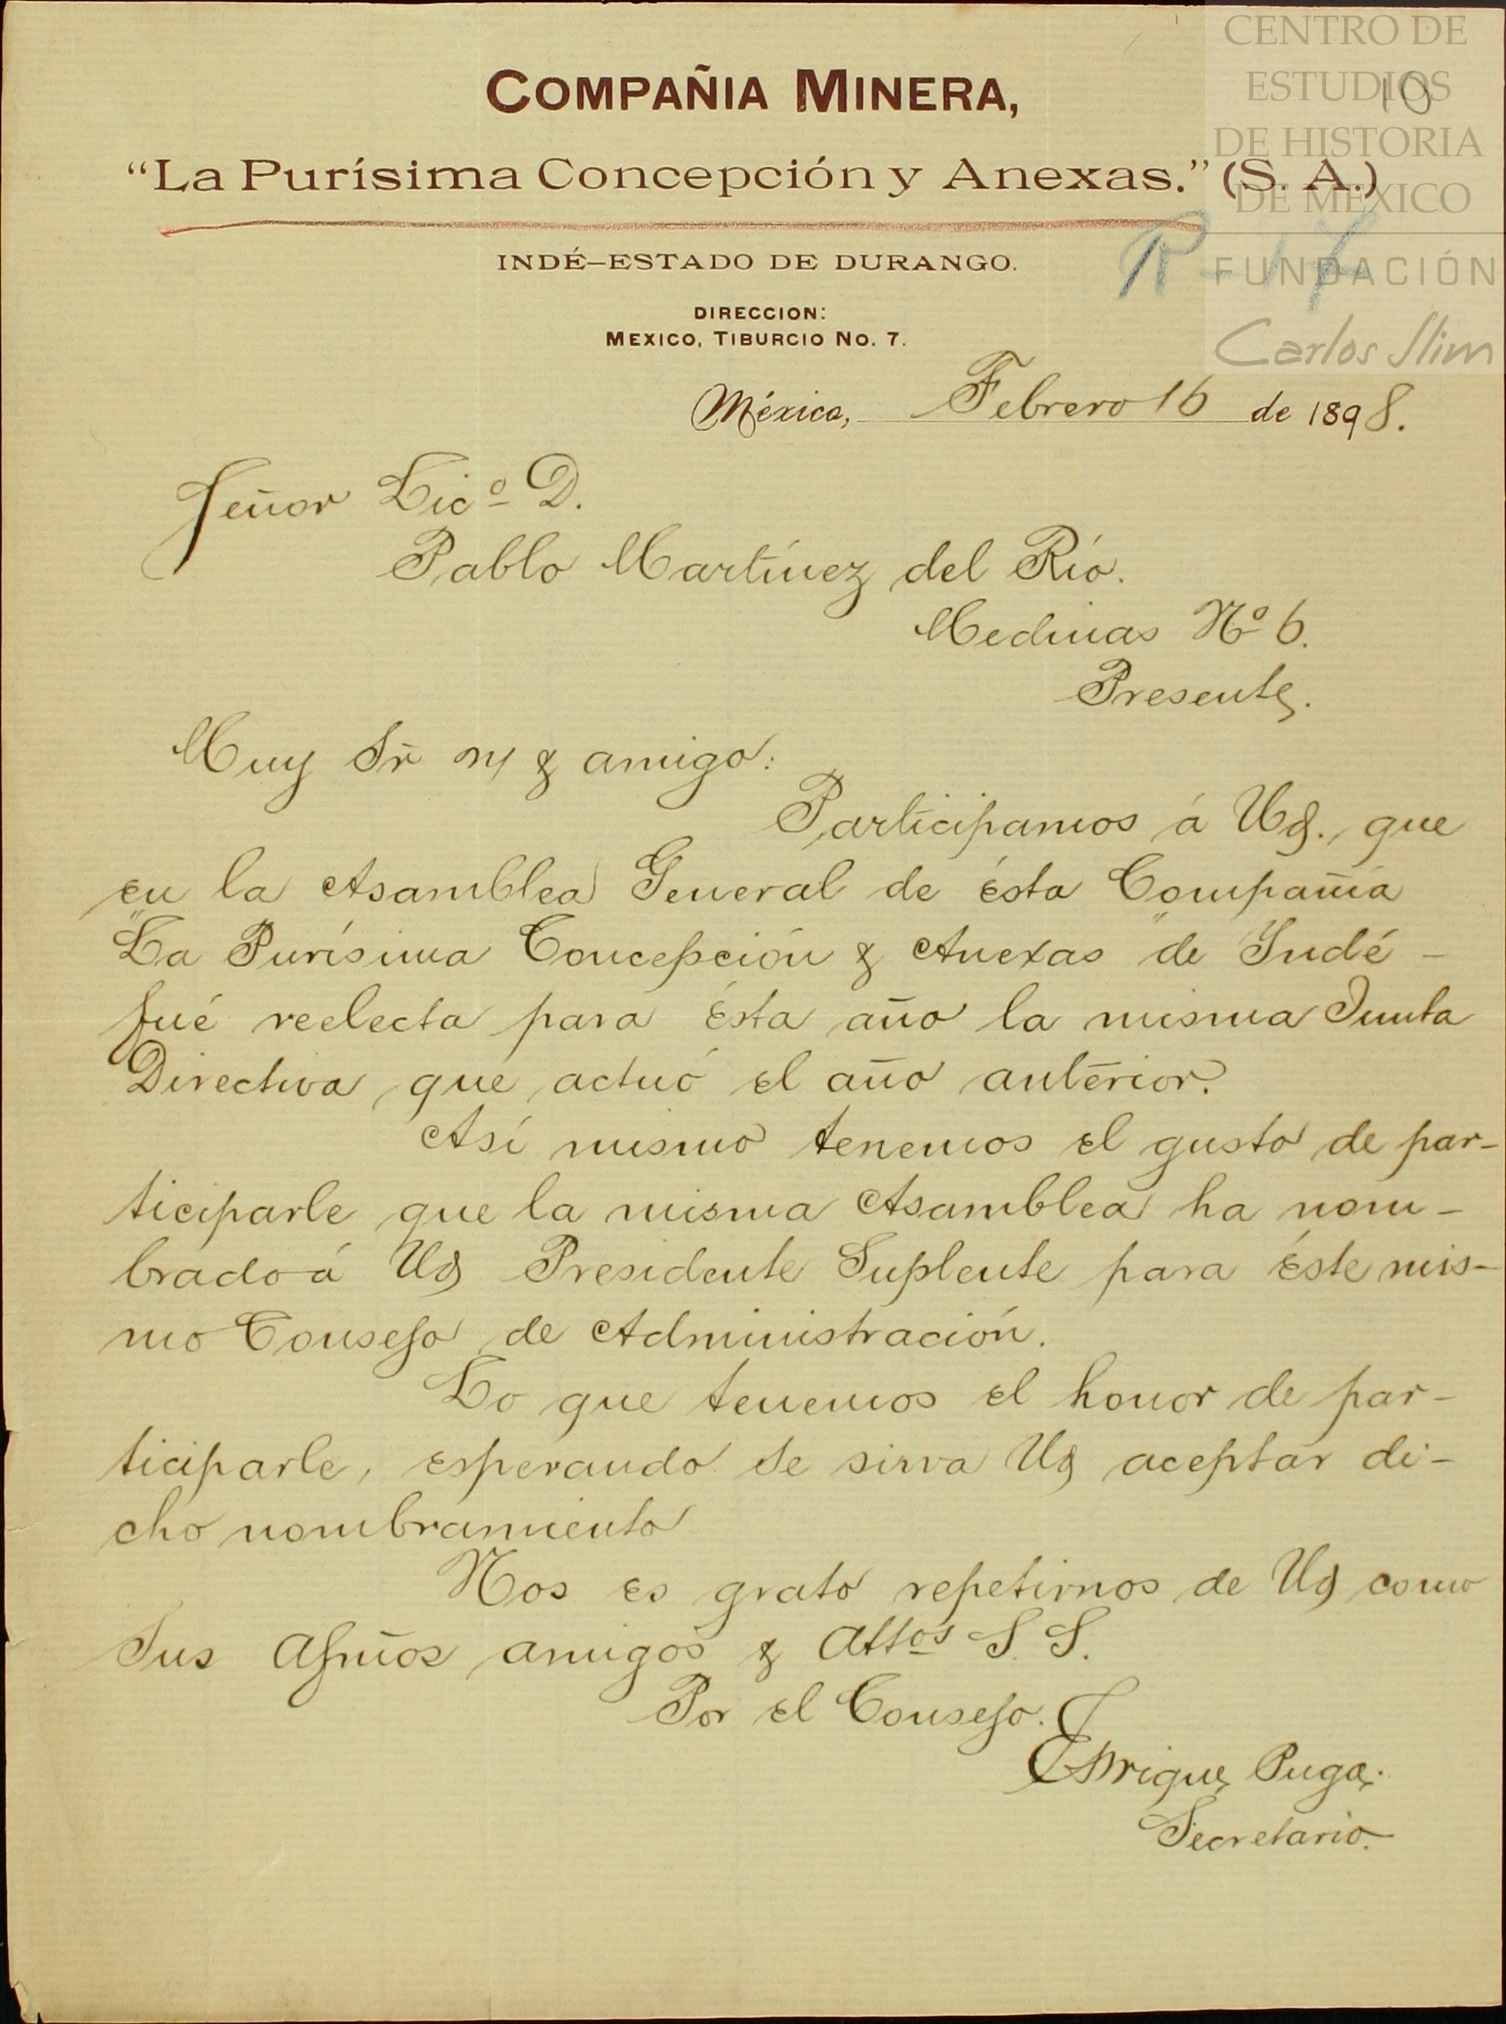 CENTRO DE
ESTUDIOS
DE HISTORIA
DE MÉXICO
FUNDACIÓN
Carlos Slim
10
COMPAÑIA MINERA,
“La Purísima Concepción y Anexas.” (S. A.)
INDÉ–ESTADO DE DURANGO.
DIRECCION:
MEXICO, TIBURCIO NO. 7.
México, Febrero 16 de 1898.
Señor Licº D.
Pablo Martínez del Río.
Medinas Nº 6.
Presente.
Muy Sr̃ m/ y amigo:
Participamos á Ud., que
en la Asamblea General de ésta Compañía
"La Purísima Concepción y Anexas" de Indé –
fué reelecta para ésta año la misma Junta
Directiva que actuó el año anterior.
Así mismo tenemos el gusto de par-
ticiparle que la misma Asamblea ha nom-
brado á Ud Presidente Suplente para éste mis-
mo Consejo de Administración.
Lo que tenemos el honor de par-
ticiparle, esperando se sirva Ud aceptar di-
cho nombramiento
Nos es grato repetirnos de Ud como
Sus Afmos amigos y Attos S. S.
Por el Consejo.
Enrique Puga.
Secretario.